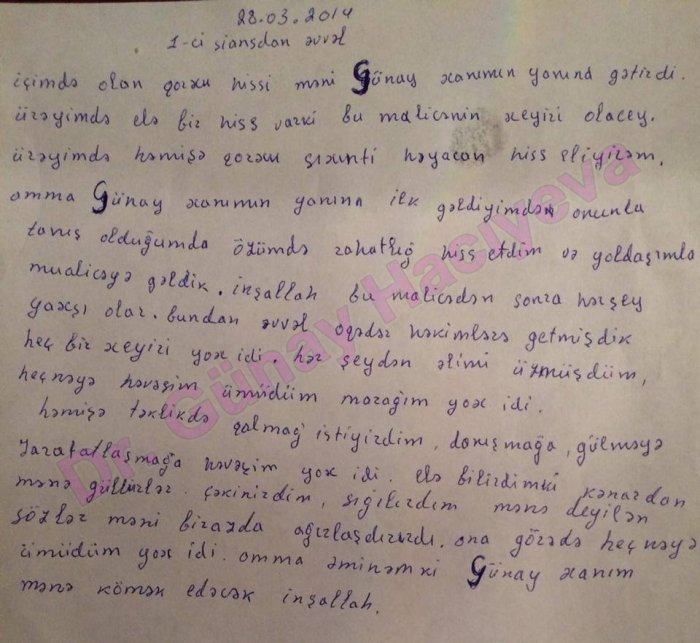 28.03.2014
1-ci siansdan əvvəl
içimdə olan qorxu hissi məni Günay xanımın yanına gətirdi.
ürəyimdə elə bir hiss varki bu malicənin xeyiri olacey.
ürəyimdə həmişə qorxu sıxıntı həyacan hiss eliyirəm,
amma Günay xanımın yanına ilk gəldiyimdən onunla
tanış olduğumda özümdə rahatlığ hiss etdim və yoldaşımla
mualicəyə gəldik. inşallah bu malicədən sonra hərşey
yaxşı olar. bundan əvvəl oqədər həkimlərə getmişdik
heç bir xeyiri yox idi. hər şeydən əlimi üzmüşdüm,
heçnəyə həvəsim ümüdüm marağım yox idi.
həmişə təklikdə qalmağ istiyirdim, danışmağa, gülməyə
zarafatlaşmağa həvəsim yox idi. elə bilirdimki kənardan
mənə gülürlər. çəkinirdim, sığılırdım mənə deyilən
sözlər məni birazda ağırlaşdırırdı. ona görədə heçnəyə
ümüdüm yox idi. amma əminəmki Günay xanım
mənə kömək edəcək inşallah.
Dr. Günay Hacıyeva